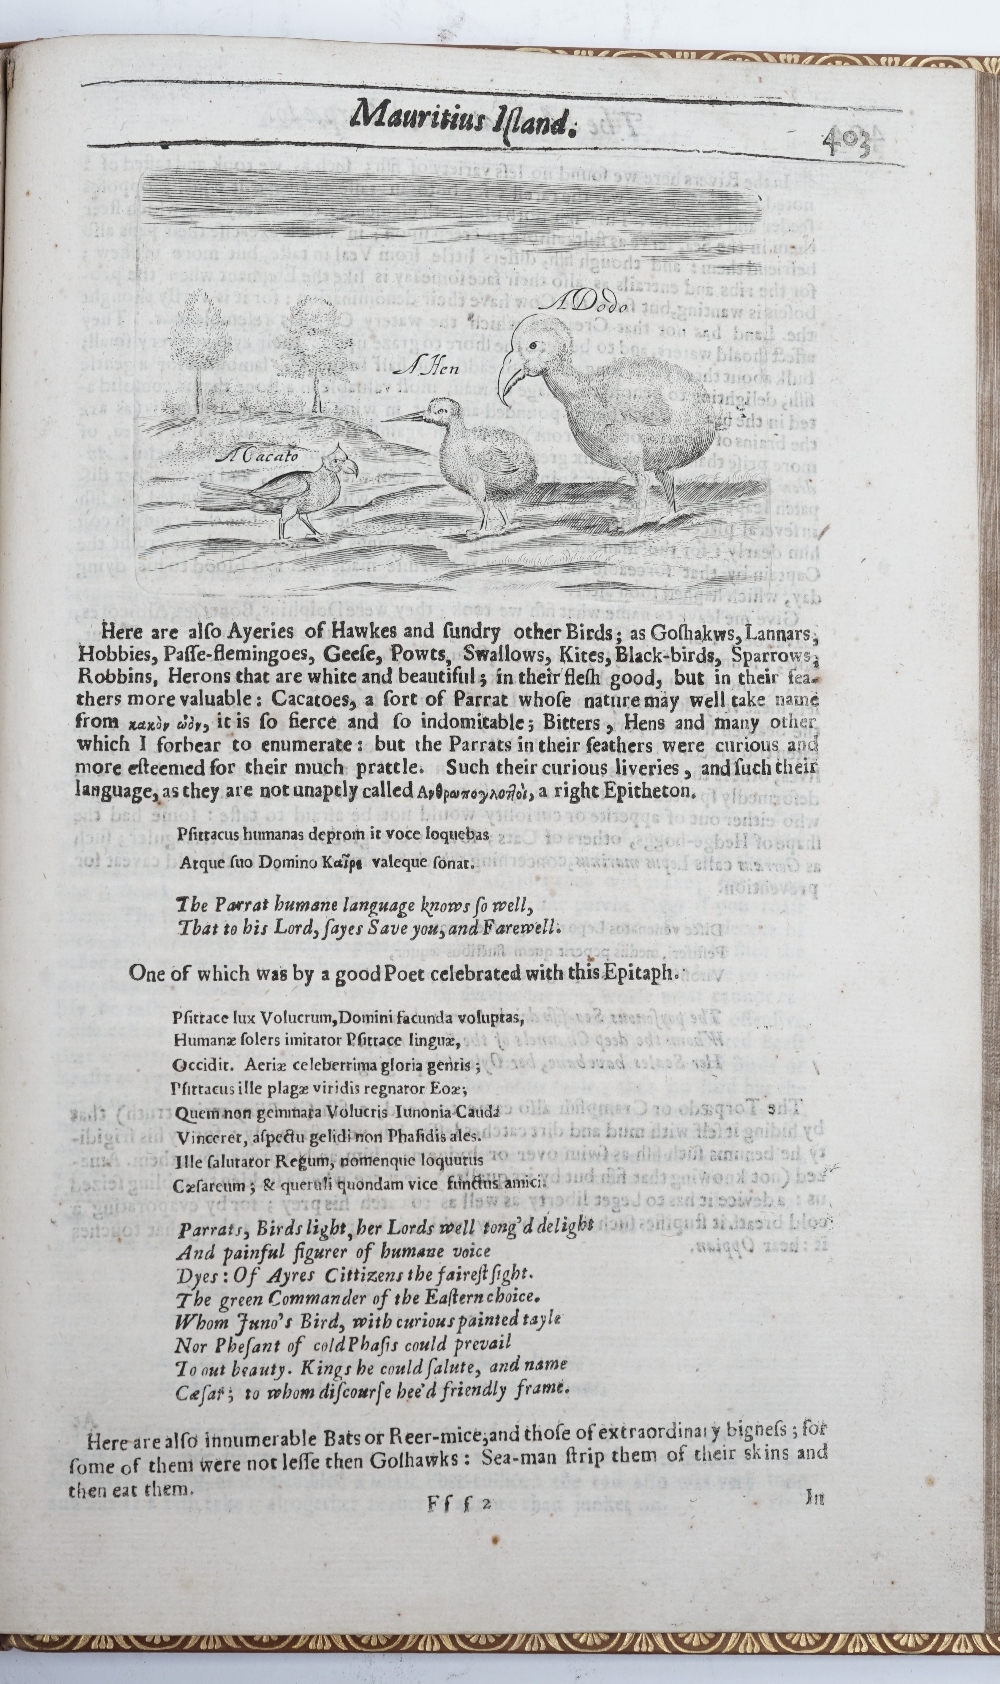 Mauritius Iſland.
403
A Dodo
A Hen
A Cacato
Here are alſo Ayeries of Hawkes and ſundry other Birds; as Goſhakws, Lannars,
Hobbies, Paſſe-flemingoes, Geeſe, Powts, Swallows, Kites, Black-birds, Sparrows,
Robbins, Herons that are white and beautiful; in their fleſh good, but in their fea-
thers more valuable: Cacatoes, a ſort of Parrat whoſe nature may well take name
from κακὸν ὠὸν, it is ſo fierce and ſo indomitable; Bitters, Hens and many other
which I forbear to enumerate: but the Parrats in their feathers were curious and
more eſteemed for their much prattle. Such their curious liveries, and ſuch their
language, as they are not unaptly called a right Epitheton.
Pſittacus humanas deprom it voce loquebas
Atque ſuo Domino Καῖρε valeque ſonat.
The Parrat humane language knows ſo well,
That to his Lord, ſayes Save you, and Farewell.
One of which was by a good Poet celebrated with this Epitaph.
Pſittace lux Volucrum, Domini facunda voluptas,
Humanæ ſolers imitator Pſittace linguæ,
Occidit. Aeriæ celeberrima gloria gentis;
Pſittacus ille plagæ viridis regnator Eoæ;
Quem non gemmata Volucris Iunonia Cauda
Vinceret, aſpectu gelidi non Phaſidis ales.
Ille ſalutator Regum, nomenque loquutus
Cæſareum; & queruli quondam vice functus amici.
Parrats, Birds light, her Lords well tong'd delight
And painful figurer of humane voice
Dyes: Of Ayres Cittizens the faireſt ſight.
The green Commander of the Eaſtern choice.
Whom Juno's Bird, with curious painted tayle
Nor Pheſant of cold Phaſis could prevail
To out beauty. Kings he could ſalute, and name
Cæſar; to whom diſcourſe hee'd friendly frame.
Here are alſo innumerable Bats or Reer-mice, and thoſe of extraordinary bigneſs; for
ſome of them were not leſſe then Goſhawks: Sea-man ſtrip them of their skins and
then eat them.
Fſ ſ 2
In